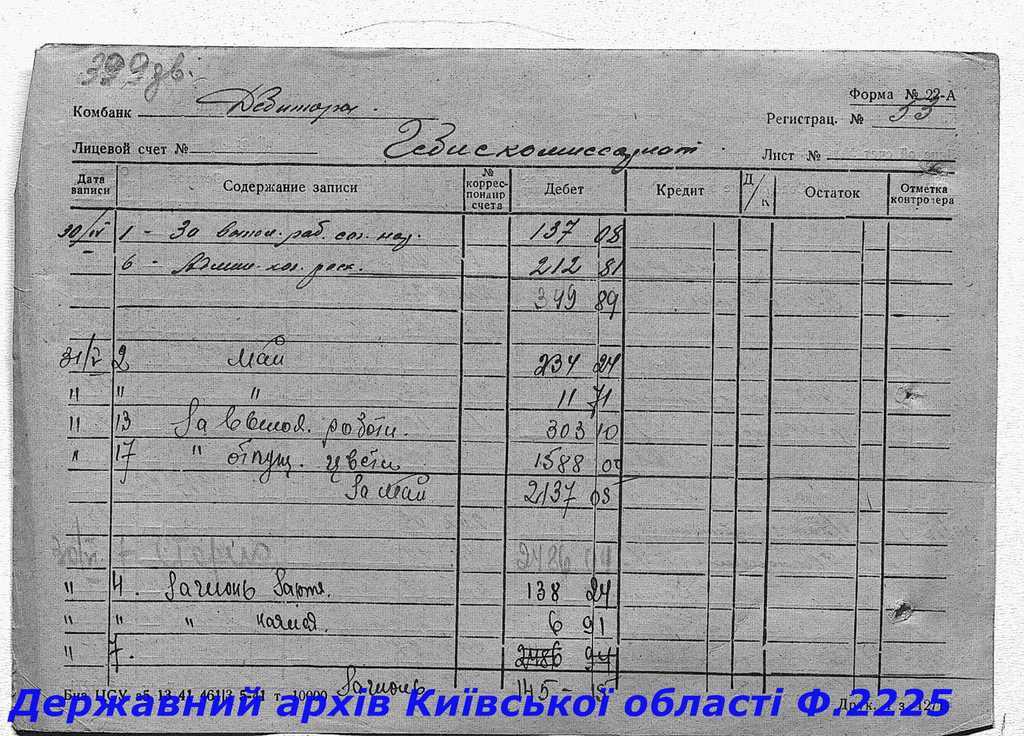 399 дв.
Форма № 22-А
Комбанк Дебитори.
Регистрац. № 33
Лицевой счет № Гебискомиссариат.
Лист №
Дата записи Содержание записи № коррес- пондир счета Дебет Кредит Д/К Остаток Отметка контролера
30/IV 1 - За выпол. раб. 137 08
6 - 212 81
349 89
31/V 2 май 234 24
" " " 11 71
" 13 За выпол. роботи. 303 10
" 17 " отпущ. цвети 1588 00
За май 2137 05
2486 94
" 4. За июнь 138 24
" " " 6 91
" 7. 2486 94
За июнь 145 - 15
10000
Державний архів Київської області Ф.2225